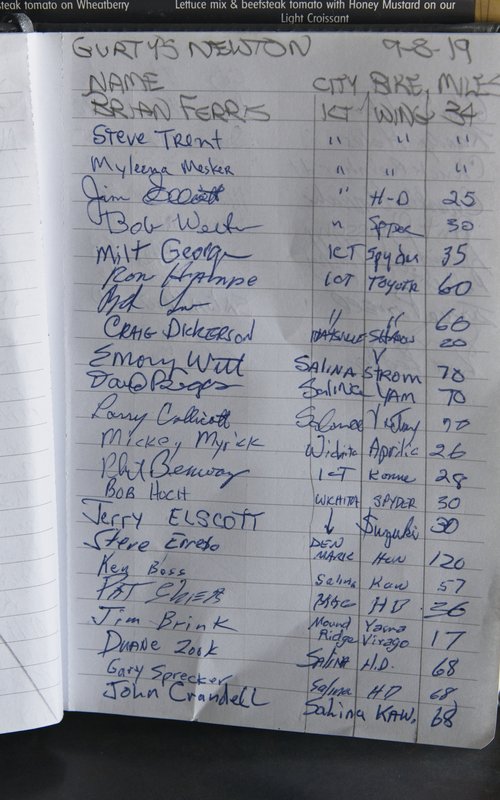 steak tomato on Wheatberry
Lettuce mix & beefsteak tomato with Honey Mustard on our
Light Croissant
GURTY'S NEWTON 9-8-19
NAME CITY BIKE MILES
BRIAN FERRIS ICT WING 34
Steve Trent " " "
Myleena Mesker " " "
Jim " H-D 25
Bob " 30
Milt George ICT Spyder 35
Ron ICT TOYOTA 60
" " 60
CRAIG DICKERSON 20
Emory Witt SALINA V STROM 70
Salina YAM 70
Larry 70
Mickey Myrick Wichita Aprilia 26
Phil Benway ICT 28
BOB HOCH WICHITA SPYDER 30
Jerry ELSCOTT ↓ Suzuki 30
Steve DEN MARK 120
Ken Boss Salina Kaw 57
PAT HD 36
Jim Brink Mound Ridge Yama Virago 17
DUANE Zook SALINA H.D. 68
Gary Sprecker Salina HD 68
John Crandell Salina KAW. 68